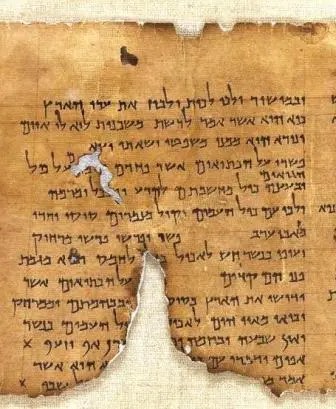 ובמישור ילכו לכות ולבוז את ערי הארץ
כיא הוא אשר אמר לרשת משכנות לוא לו איום
ונורא הוא ממנו משפטו ושאתו יצא
פשרו על הכתיאים אשר פחדם על כול
הגואים
ובעצה כול מחשבתם להרע ומרמה
ילכו עם כול העמים וקול מנמרים סוסו וחדו
מזאבי ערב פשו ופרשו פרשו מרחוק
יעופו כנשר חש לאכול לחמס יבוא מגמת
פניהם קדים הכתיאים אשר
ידושו את הארץ ובבהמתם וממרחק
יבואו מאיי הים לאכול העמים כנשר
ואין שבעה ובחמה אף וזעף
אפים ידברו עם הוא אשר